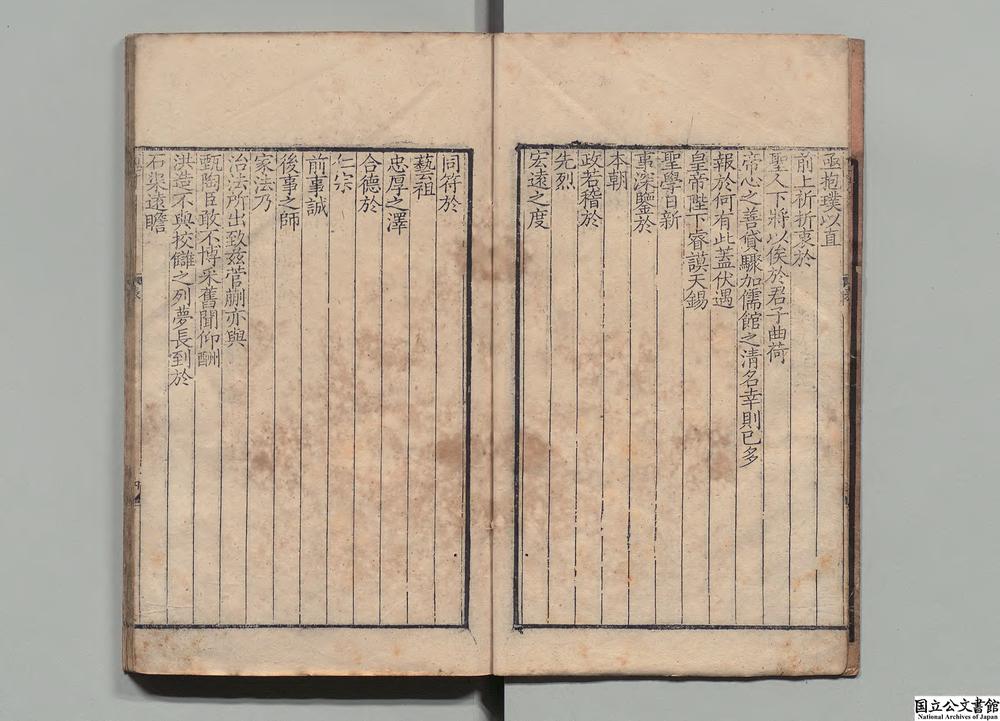 亟抱璞以直
前上祈折衷於
聖人下將以俟於君子曲荷
帝心之善貸驟加儒館之清名幸則已多
報於何有此蓋伏遇
皇帝陛下睿謨天錫
聖學日新
事深鑒於
本朝
政若稽於
先烈
宏遠之度
同符於
藝祖
忠厚之澤
合德於
仁宗
前事誠
後事之師
家法乃
治法所出致茲菅蒯亦與
甄陶臣敢不博采舊聞仰酬
洪造不與校讎之列夢長到於
石渠遠瞻
国立公文書館
National Archives of Japan